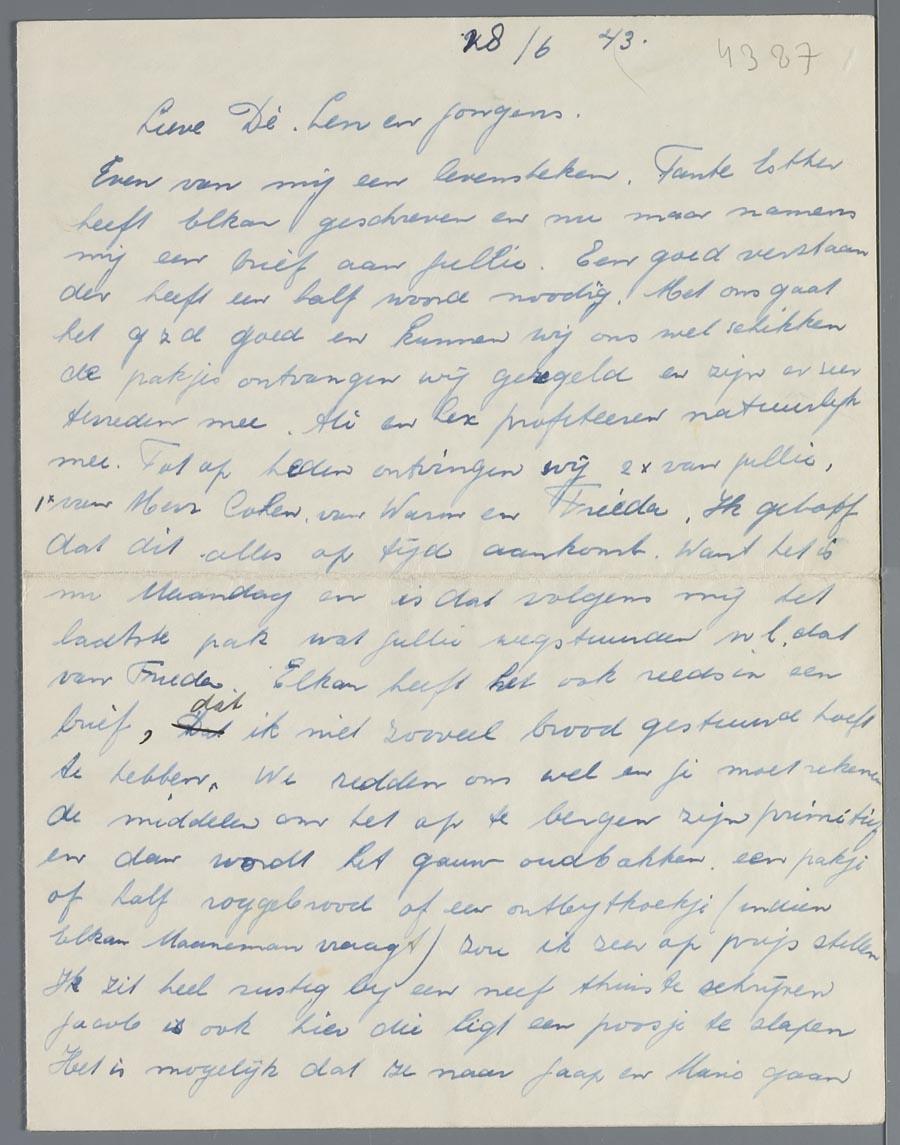 28/6 43.
4387
Lieve Dé. Len en jongens.
Even van mij een levensteken. Tante Esther
heeft Elkan geschreven en nu maar namens
mij een brief aan jullie. Een goed verstaan
der heeft een half woord noodig. Met ons gaat
het gzd goed en kunnen wij ons wel schikken
de pakjes ontvangen wij geregeld en zijn er zeer
tevreden mee. Ali en Lex profiteeren natuurlijk
mee. Tot op heden ontvingen wij 2x van jullie,
1x van Mevr Cohen, van Warm en Frieda. Ik geb off
dat dit alles op tijd aankomt. Want het is
nu Maandag en is dat volgens mij het
laatste pak wat jullie wegstuurden n l. dat
van Frieda. Elkan heeft het ook reeds in een
brief, dat ik niet zooveel brood gestuurd hoeft
te hebben. We redden ons wel en je moet rekenen
de middelen om het op te bergen zijn primitief
en dan wordt het gauw oudbakken. een pakje
of half roggebrood of een ontbijtkoekje (indien
Elkan Maaneman vraagt) zou ik zeer op prijs stellen
Ik zit heel rustig bij een neef thuis te schrijven
Jacob is ook hier die ligt een poosje te slapen
Het is mogelijk dat ze naar Jaap en Marie gaan